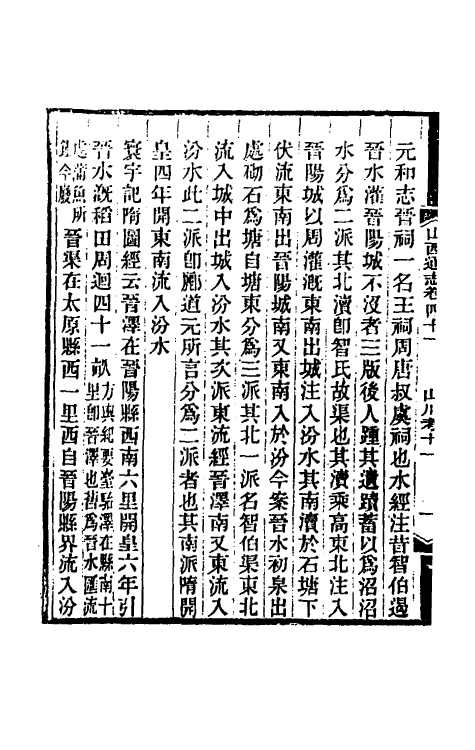 山西通志卷四十一　山川考十一　一
元和志晉祠一名王祠周唐叔虞祠也水經注昔智伯遏
晉水灌晉陽城不沒者三版後人踵其遺蹟蓄以爲沼沼
水分爲二派其北瀆卽智氏故渠也其瀆乘高東北注入
晉陽城以周灌漑東南出城注入汾水其南瀆於石塘下
伏流東南出晉陽城南又東南入於汾今案晉水初泉出
處砌石爲塘自塘東分爲三派其北一派名智伯渠東北
流入城中出城入汾水其次派東流經晉澤南又東流入
汾水此二派卽酈道元所言分爲二派者也其南派隋開
皇四年開東南流入汾水
寰宇記隋圖經云晉澤在晉陽縣西南六里開皇六年引
晉水漑稻田周迴四十一畝方輿紀要臺駘澤在縣南十里卽晉澤也舊爲晉水匯流
處蒲魚所鍾今廢晉渠在太原縣西一里西自晉陽縣界流入汾